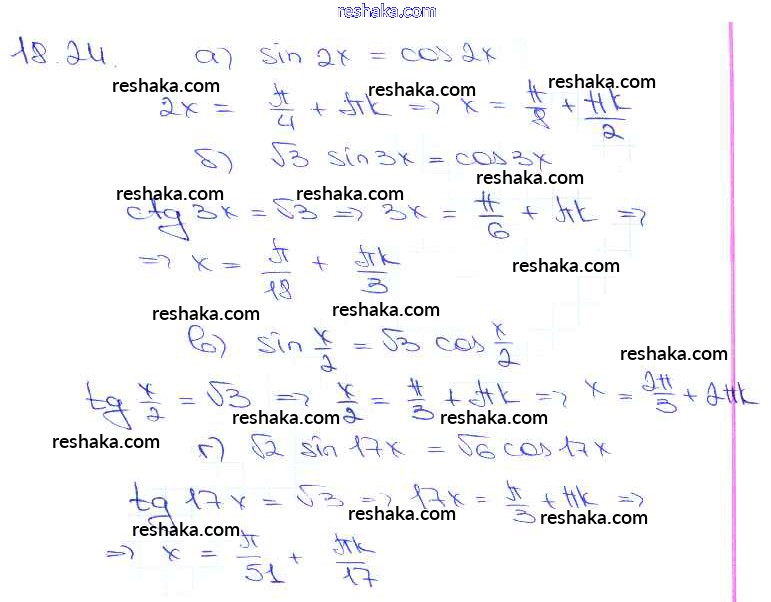 reshaka.com
18.24. а) sin 2x = cos 2x
reshaka.com reshaka.com reshaka.com
2x = π/4 + πk => x = π/8 + πk/2
б) √3 sin 3x = cos 3x
reshaka.com reshaka.com reshaka.com
ctg 3x = √3 => 3x = π/6 + πk =>
=> x = π/18 + πk/3
reshaka.com
reshaka.com reshaka.com
в) sin x/2 = √3 cos x/2
reshaka.com
tg x/2 = √3 => x/2 = π/3 + πk => x = 2π/3 + 2πk
reshaka.com reshaka.com reshaka.com
г) √2 sin 17x = √6 cos 17x
tg 17x = √3 => 17x = π/3 + πk =>
reshaka.com reshaka.com
=> x = π/51 + πk/17